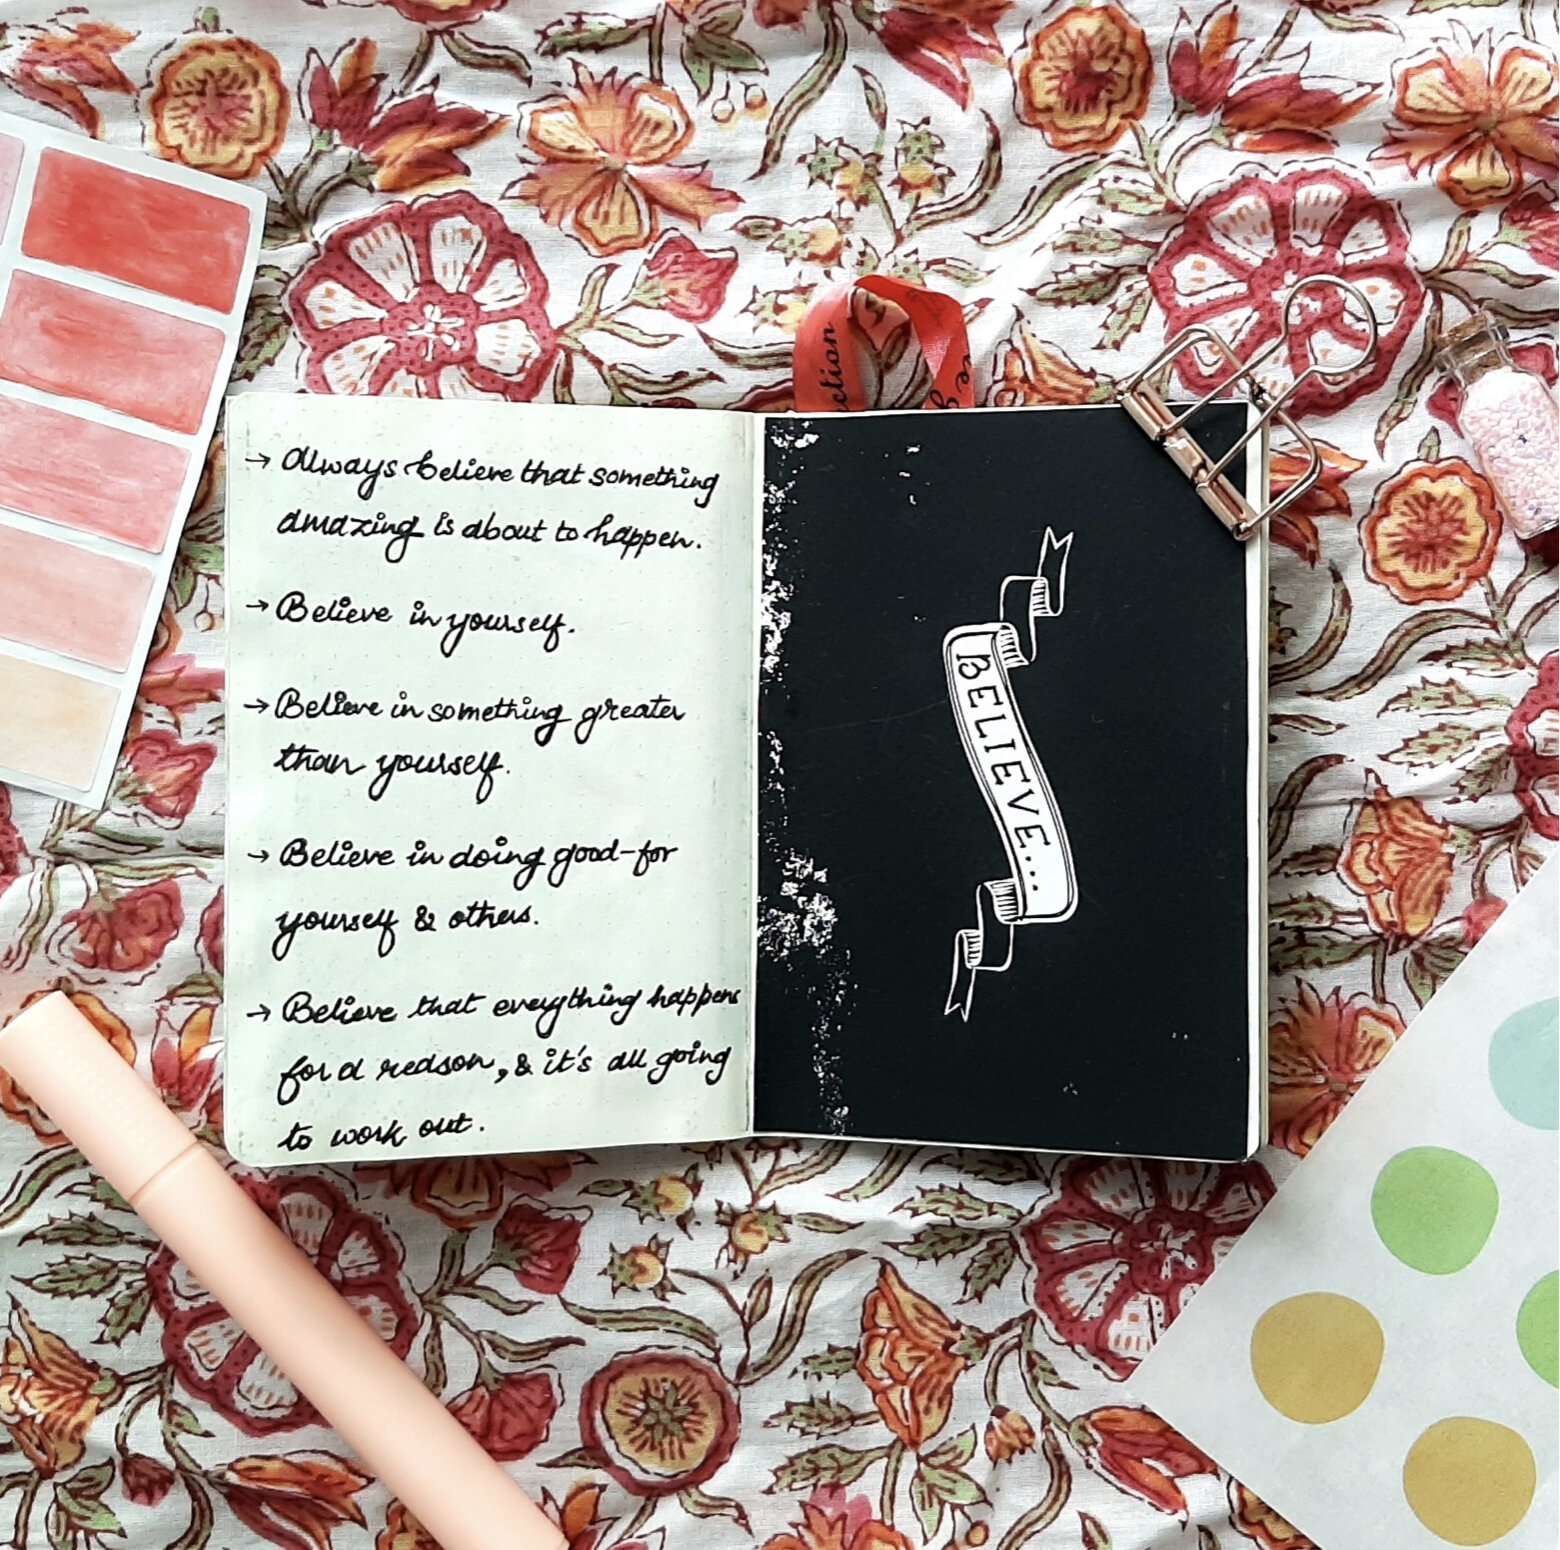 ction
ve
→ Always believe that something
amazing is about to happen.
→ Believe in yourself.
→ Believe in something greater
than yourself.
→ Believe in doing good-for
yourself & others.
→ Believe that everything happens
for a reason, & it's all going
to work out.
BELIEVE...